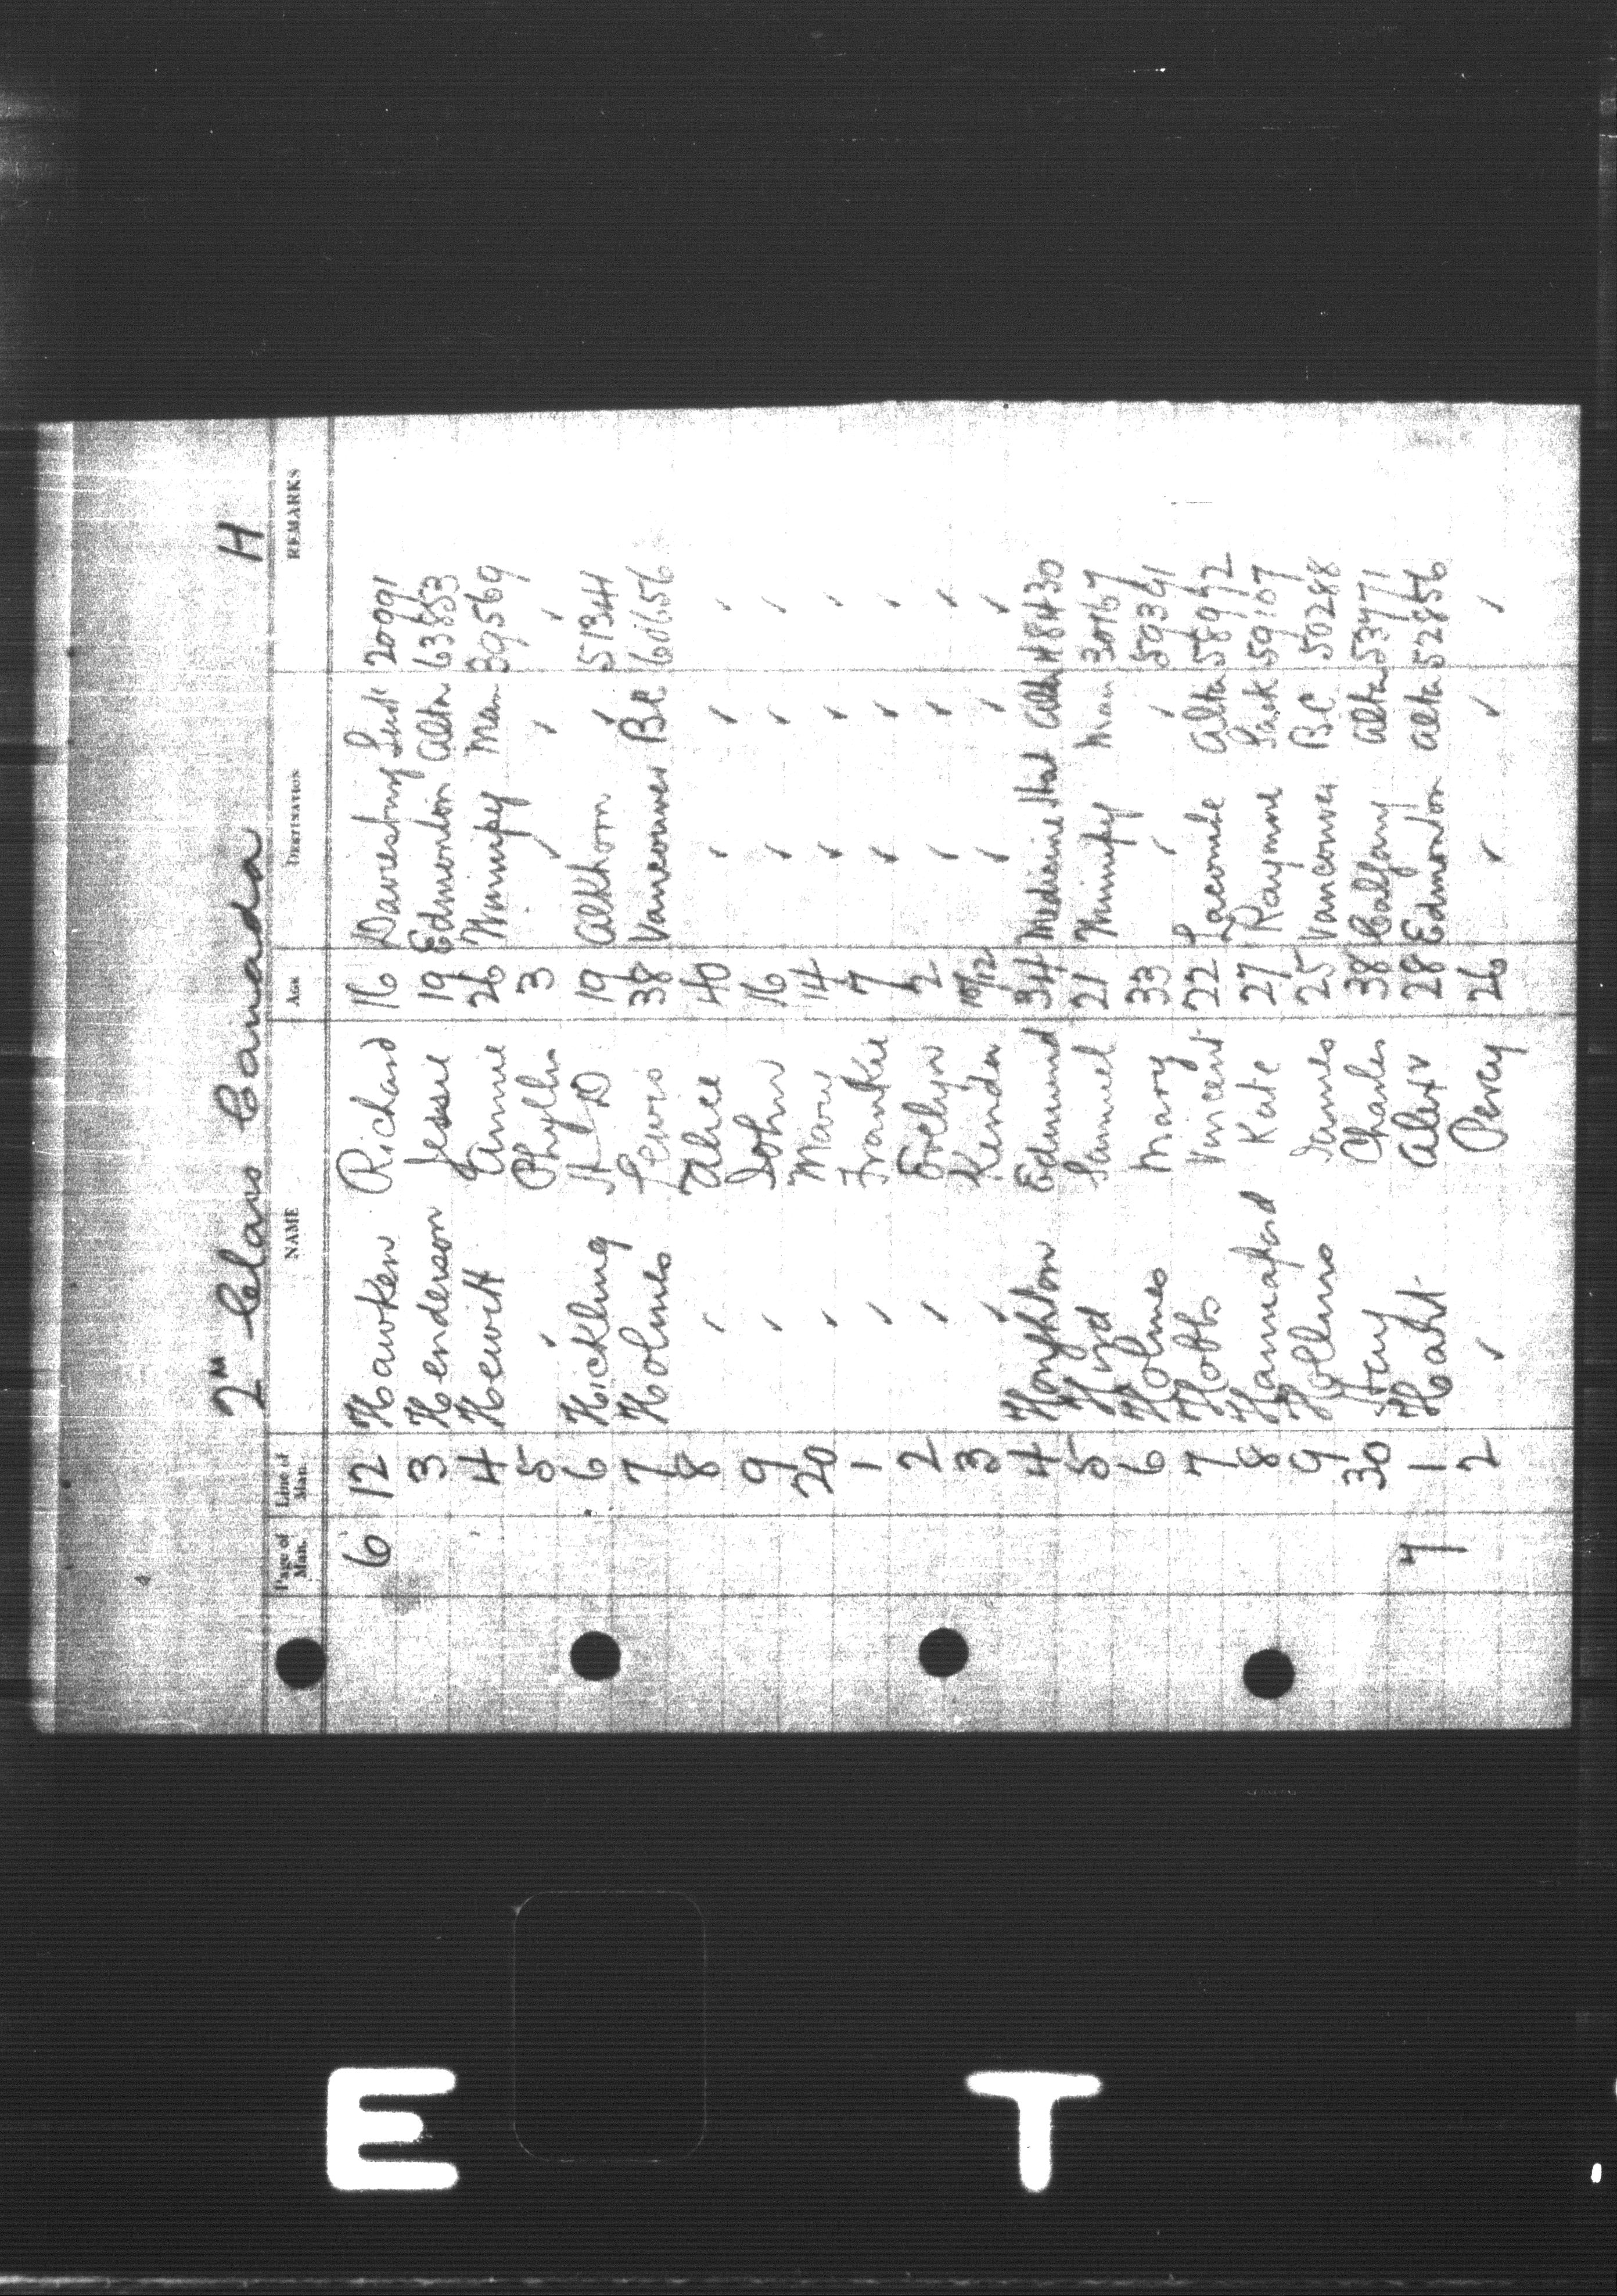 2nd Class Canada H
Page of Man. Line of Man. NAME AGE DESTINATION REMARKS
6 12 Hawken Richard 16 Sask 20991
3 Henderson Jessie 19 Edmonton Alta 63853
4 Hewitt Annie 26 Winnipeg Man 39569
5 ✓ Phyllis 3 ✓ ✓ ✓
6 Hickling H D 19 ✓ 51344
7 Holmes Lewis 38 Vancouver B.C. 60656
8 ✓ Alice 40 ✓ ✓ ✓
9 ✓ John 16 ✓ ✓ ✓
20 ✓ Mary 14 ✓ ✓ ✓
1 ✓ Frankie 7 ✓ ✓ ✓
2 ✓ Evelyn 2 ✓ ✓ ✓
3 ✓ 10/12 ✓ ✓ ✓
4 Houghton Edmund 34 Medicine Hat Alta 48430
5 Hird Samuel 21 Winnipeg Man 30167
6 Holmes Mary 33 ✓ ✓ 59391
7 Hobbs Vincent 22 Lacombe Alta 58972
8 Hannaford Kate 27 Raymore Sask 59107
9 Hollins James 25 Vancouver BC 50288
30 Charles 38 Calgary Alta 53771
7 1 Alexr 28 Edmonton Alta 52856
2 ✓ Percy 26 ✓ ✓ ✓
E T